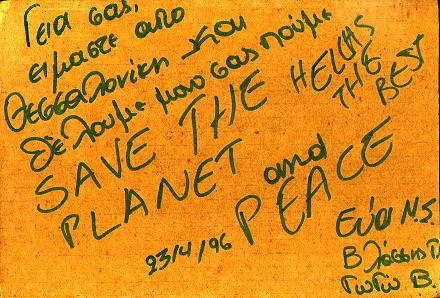 Γεια σας,
ειμαστε απο
Θεσσαλονίκη και
θέλουμε μονο σας πούμε
SAVE THE
PLANET and
PEACE
HELLAS
THE
BEST
23/4/96
Εύα Ν.Σ.
Βλάσσης Γ.
Γιώτα Β.